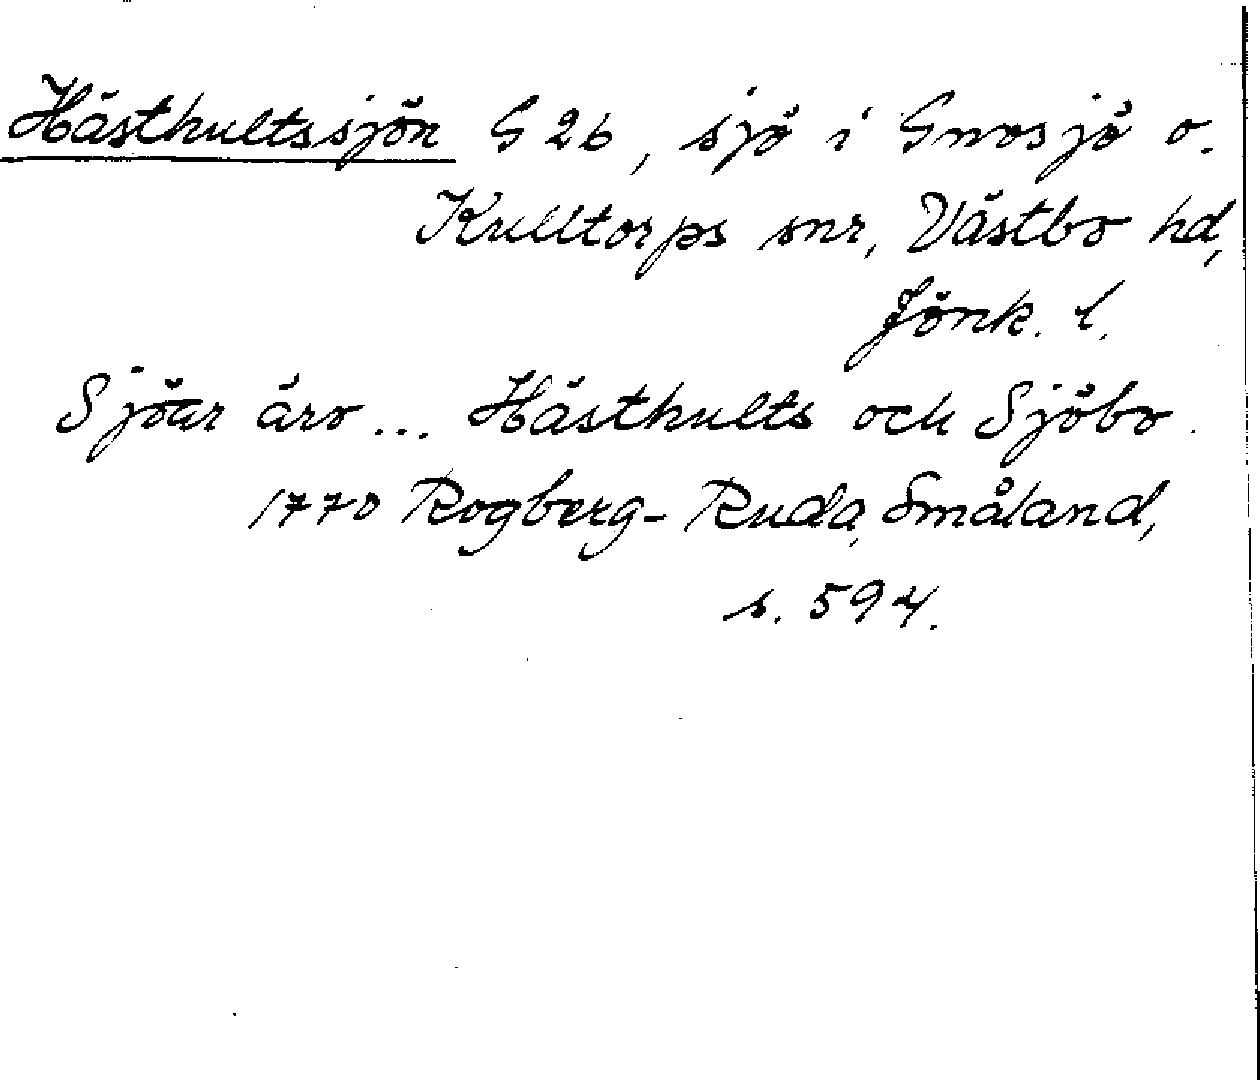 Hästhultssjön G 26, sjö i Gnosjö o.
Kulltorps snr, Västbo hd,
Jönk. l.
Sjöar äro... Hästhults och Sjöbo.
1770 Rogberg-Ruda, Småland,
s. 594.